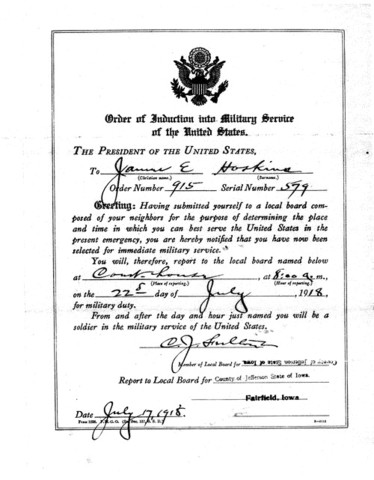 Order of Induction into Military Service
of the United States.
THE PRESIDENT OF THE UNITED STATES,
To James E Hoskins
(Christian name.) (Surname.)
Order Number 915 Serial Number 599
Greeting: Having submitted yourself to a local board com-
posed of your neighbors for the purpose of determining the place
and time in which you can best serve the United States in the
present emergency, you are hereby notified that you have now been
selected for immediate military service.
You will, therefore, report to the local board named below
at Court-house, at 8:00 a.m.,
(Place of reporting.) (Hour of reporting.)
on the 22 day of July, 1918,
for military duty.
From and after the day and hour just named you will be a
soldier in the military service of the United States.
C. J.
Member of Local Board for County of Jefferson State of Iowa.
Report to Local Board for County of Jefferson State of Iowa.
Fairfield, Iowa
Date July 17, 1918.
Form